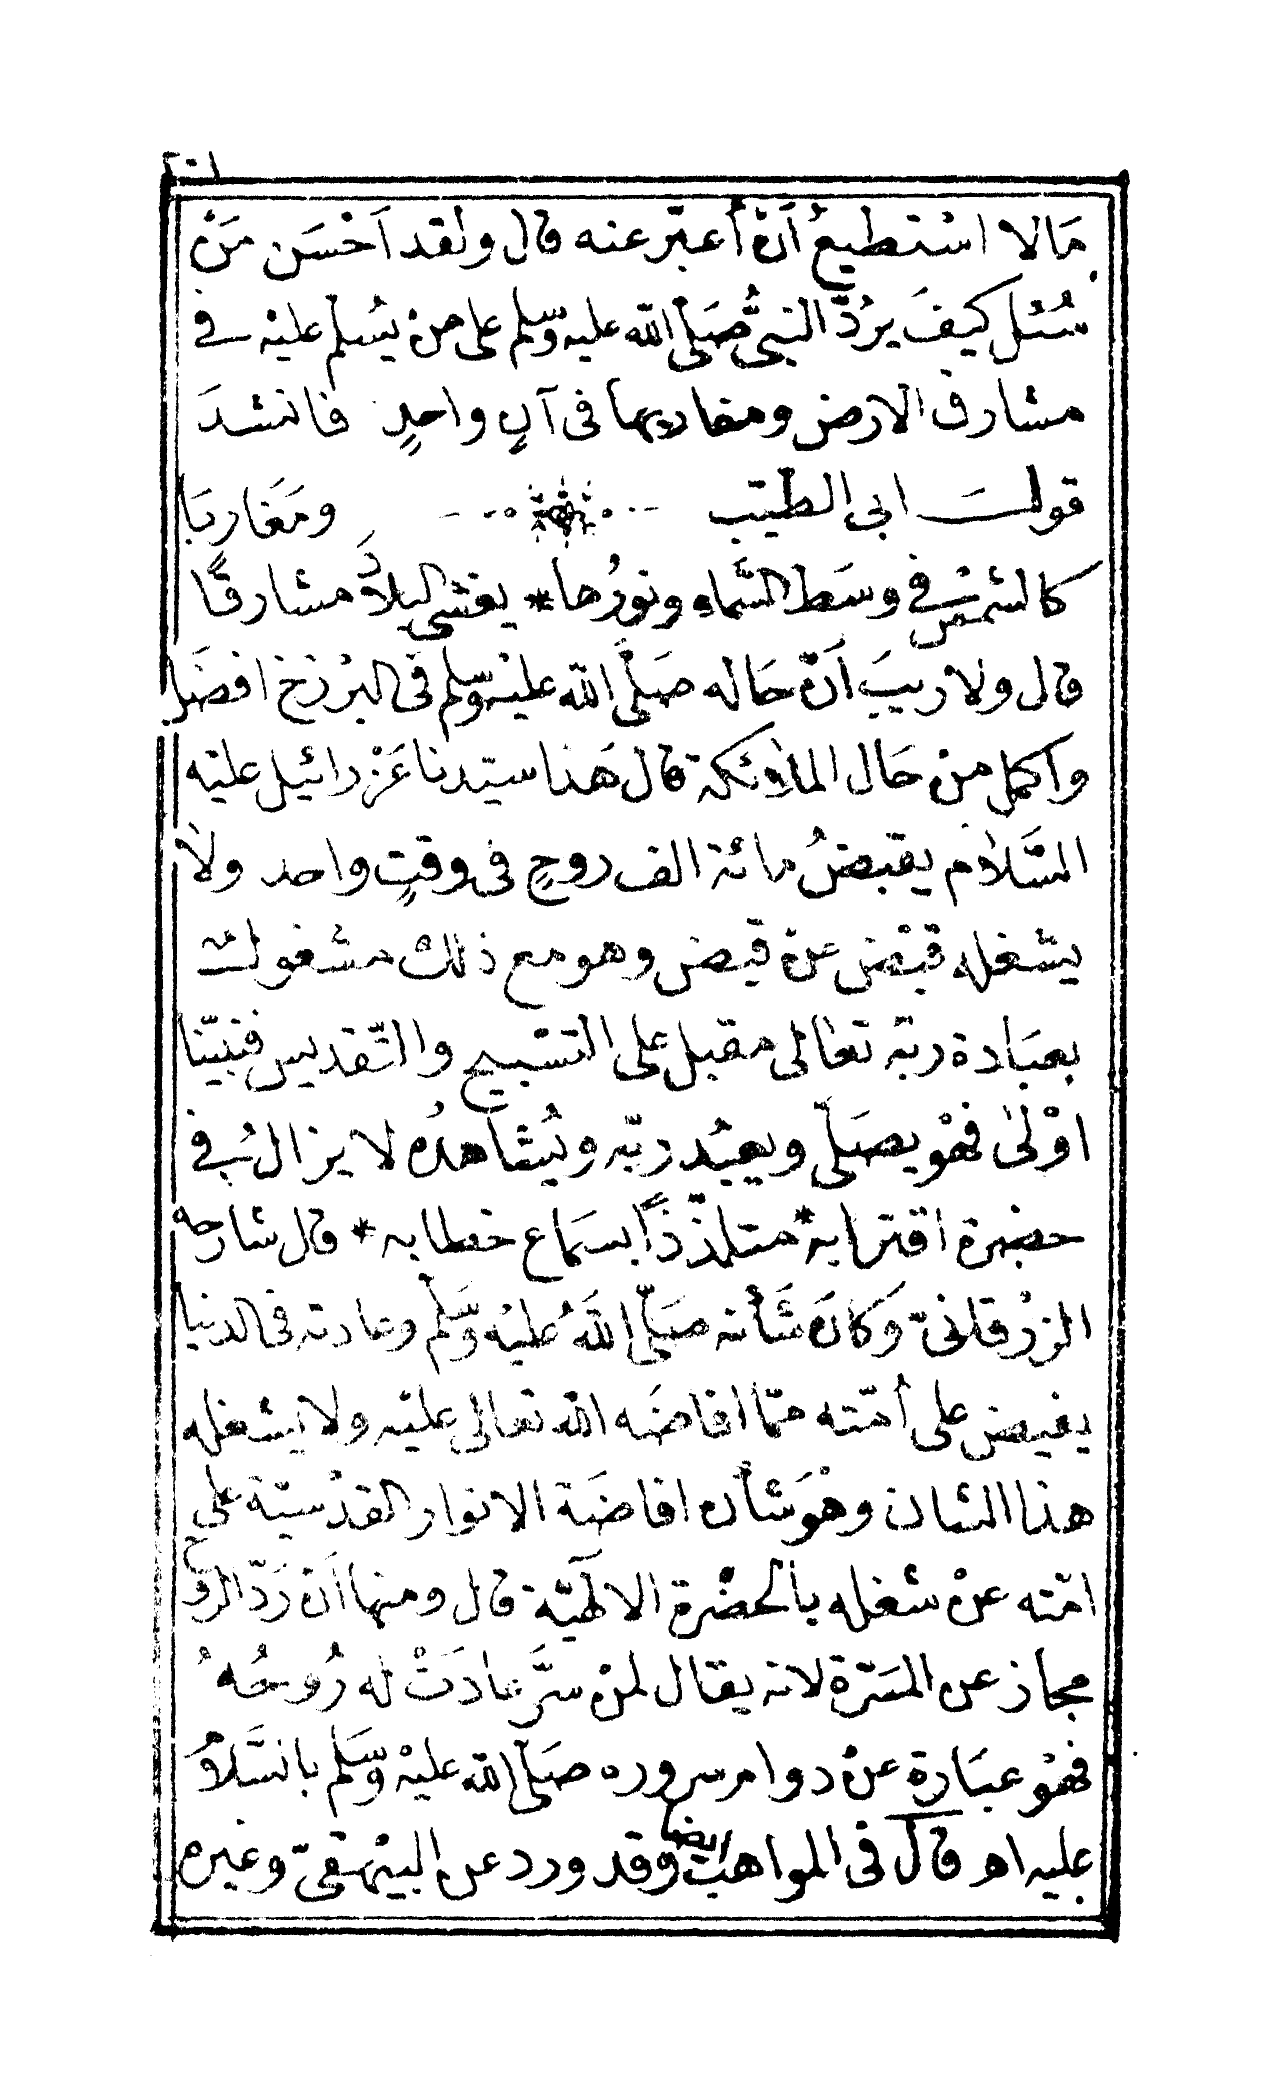 مَالا اسْتطيعُ اَنْ أُعبّر عنه قال ولقد اَحْسَن مَنْ
سُئل كيفَ يرُدُّ النبىُّ صَلّى الله عليه وسلم على منْ يُسلم عليْه فى
مشارق الارض ومغاربها فى آنٍ واحدٍ فانشدَ
قولَ ابى الطّيّب ومَغَاربَا
كالشمْس فى وسَط السَّماءِ ونورُها * يغشى البلادَ مشارقًا
قال ولا ريبَ اَنّ حَاله صَلَّى الله عليْه وسلم فى البرْزخ افضَل
واكمل منْ حَال الملٰائكة قال هَذا سيّدنا عَزْرائيل عليْه
السَّلاٰم يقبضُ مائة الف روحٍ فى وقتٍ واحد ولاٰ
يشغله قبْض عنْ قبض وهو مع ذلك مشغول
بعبَادة ربّه تعَالى مقبل على التسْبيح والتّقديس فنبيّنا
اوْلىٰ فهْو يصَلّى ويعبُد ربّه ويُشاهدُه لا يزالُ فى
حضرة اقترابه * متلذّذاً بسَماع خطابه * قال شارحه
الزرْقانىّ وَكانَ شَأنه صَلّى اللهُ عليْه وسَلّم وعادته فى الدنيا
يفيض على أمّته ممّا افاضَه الله تعالى عليْه ولا يشغله
هذا الشان وهْوَ شَأن افاضَة الانوار القدْسيّة على
امّته عنْ شغله بالحضْرة الالٰهيّة قال ومنها اَنّ رَدّ الروح
مجاز عن المسَرّة لانه يقال لمنْ سرَّ عادَتْ له رُوحُهُ
فهْو عبَارة عنْ دوام سروره صَلّى الله عليْه وسَلم بالسَّلامُ
عليه اهـ قالَ فى المواهب ايضا وقد ورد عن البيْهقىّ وغيره